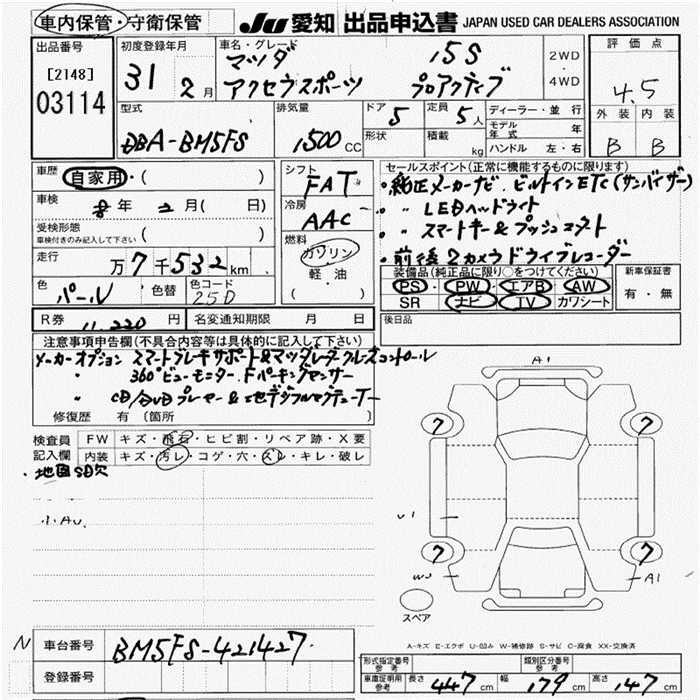 車内保管・守衛保管
JU 愛知 出品申込書 JAPAN USED CAR DEALERS ASSOCIATION
出品番号
[2148]
03114
初度登録年月
31 2月
車名・グレード
マツダ 15S
アクセラスポーツ プロアクティブ
2WD
4WD
評価点
4.5
外装 内装
B B
型式
DBA-BM5FS
排気量
1500 CC
ドア 5
形状
定員 5人
積載 kg
ディーラー・並行
モデル年式 年
ハンドル 左・右
車歴
自家用・( )
車検
年 2月( 日)
受検形態
車検付きのみ記入して下さい ( )
走行
万7千532km
色 パール 色替 色コード 25D
シフト
FAT
冷房
AAC
燃料
ガソリン
軽・油
( )
セールスポイント(正常に機能するものに限ります)
・純正メーカーナビ ビルトインETC(サンバイザー)
・ 〃 LEDヘッドライト
・ 〃 スマートキー&プッシュスタート
・前後2カメラドライブレコーダー
装備品(純正品に限り○をつけてください)
PS・PW・エアB・AW
SR ナビ・TV・カワシート
新車保証書
有・無
R券 11,220円 名変通知期限 月 日
後日品
注意事項申告欄(不具合内容等は具体的に記入して下さい)
メーカーオプション スマートブレーキサポート&マツダレーダークルーズコントロール
〃 360°ビューモニター.Fパーキングセンサー
〃 CD/DVDプレーヤー&地デジフルセグチューナー
修復歴 有(箇所 )
検査員記入欄
FW キズ・飛石・ヒビ割・リペア跡・X要
内装 キズ・汚レ・コゲ・穴・スレ・キレ・破レ
・地図SD欠
小AU.
A1
7 7
U1
7 7
W3 A1
スペア
A-キズ E-エクボ U-凹み W-補修跡 S-サビ C-腐食 XX-交換済
N 車台番号 BM5FS-421427.
登録番号
形式指定番号 参考
類別区分番号 参考
車庫証明用 参考 長さ 447cm 幅 179cm 高さ 147cm